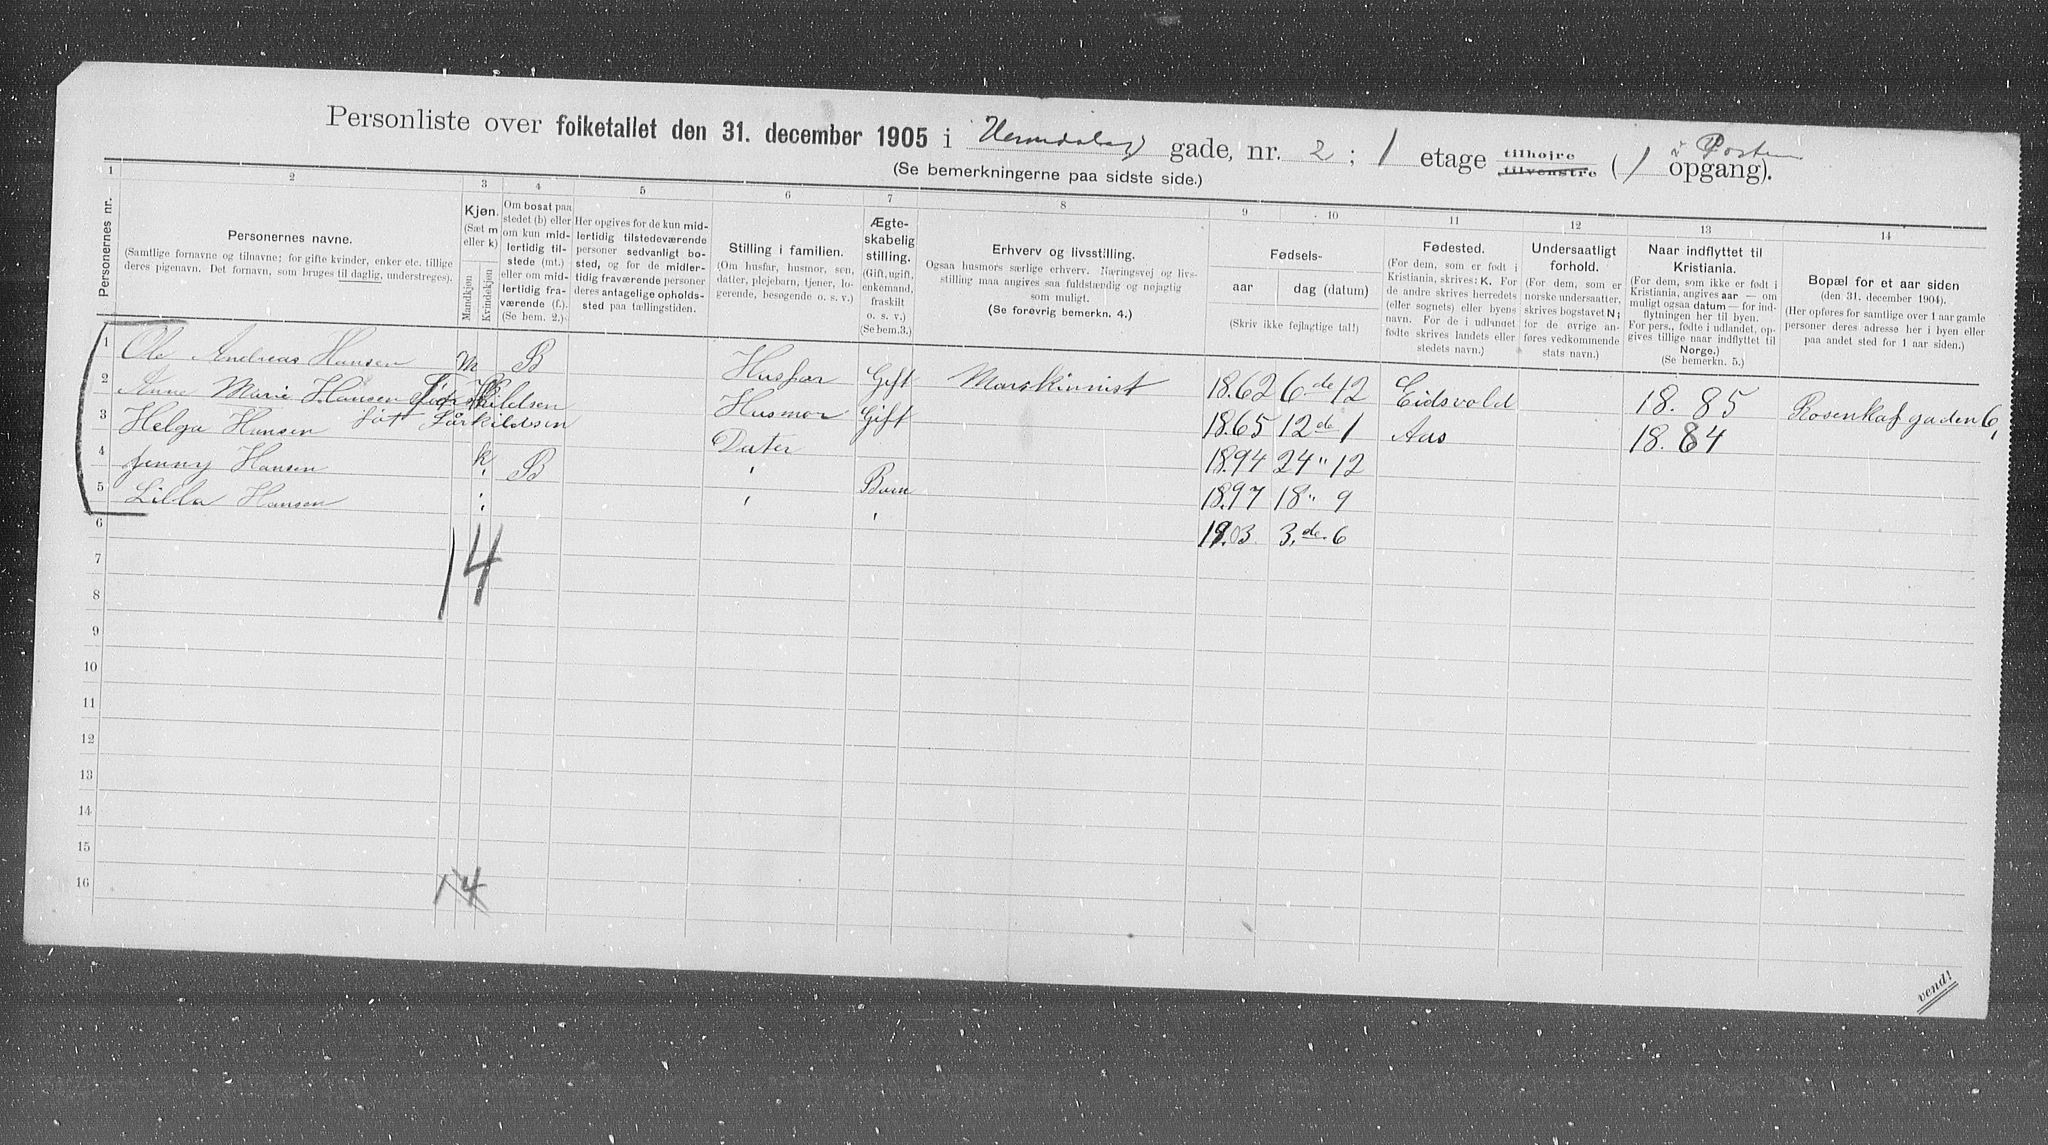 Personliste over folketallet den 31. december 1905 i gade, nr. 2; 1 etage tilhøjre tilvenstre (1 opgang).
(Se bemerkningerne paa sidste side.)
1 2 3 4 5 6 7 8 9 10 11 12 13 14
Personernes nr.
Personernes navne.
(Samtlige fornavne og tilnavne; for gifte kvinder, enker etc. tillige deres pigenavn. Det fornavn, som bruges til daglig, understreges).
Kjøn.
(Sæt m eller k)
Mandkjøn
Kvindekjøn
Om bosat paa stedet (b) eller om kun midlertidig tilstede (mt.) eller om midlertidig fraværende (f.). (Se bem. 2.)
Her opgives for de kun midlertidig tilstedeværende personer sedvanligt bosted, og for de midlertidig fraværende personer deres antagelige opholdssted paa tællingstiden.
Stilling i familien.
(Om husfar, husmor, søn, datter, plejebarn, tjener, logerende, besøgende o. s. v.)
Ægteskabelig stilling.
(Gift, ugift, enkemand, fraskilt o. s. v.)
(Se bem.3.)
Erhverv og livsstilling.
Ogsaa husmors særlige erhverv. Næringsvej og livsstilling maa angives saa fuldstændig og nøjagtig som muligt.
(Se forøvrig bemerkn. 4.)
Fødsels-
aar dag (datum)
(Skriv ikke fejlagtige tal!)
Fødested.
(For dem, som er født i Kristiania, skrives: K. For de andre skrives herredets (eller sognets) eller byens navn. For de i udlandet fødte skrives landets eller stedets navn.)
Undersaatligt forhold.
(For dem, som er norske undersaatter, skrives bogstavet N; for de øvrige anføres vedkommende stats navn.)
Naar indflyttet til Kristiania.
(For dem, som ikke er født i Kristiania, angives aar — om muligt ogsaa datum — for indflytningen her til byen. For pers., fødte i udlandet, opgives tillige naar indflyttet til Norge.)
(Se bemerkn. 5.)
Bopæl for et aar siden
(den 31. december 1904).
(Her opføres for samtlige over 1 aar gamle personer deres adresse her i byen eller paa andet sted for 1 aar siden.)
1 Ole Andreas Hansen m B Husfar Gift Marskinnist 1862 6de 12 Eidsvold 1885 Rosenkaf gaden 6,
2 Anne Marie Hansen Husmor Gift 1865 12de 1 Aas 1884
født Torkildsen
3 Helga Hansen k B Dater Barn 1894 24" 12
4 Jenny Hansen " " " 1897 18" 9
5 Lilla Hansen " " 1903 3.de 6
6
7
8
9
10
11
12
13
14
15
16
1 4
1 4
vend!